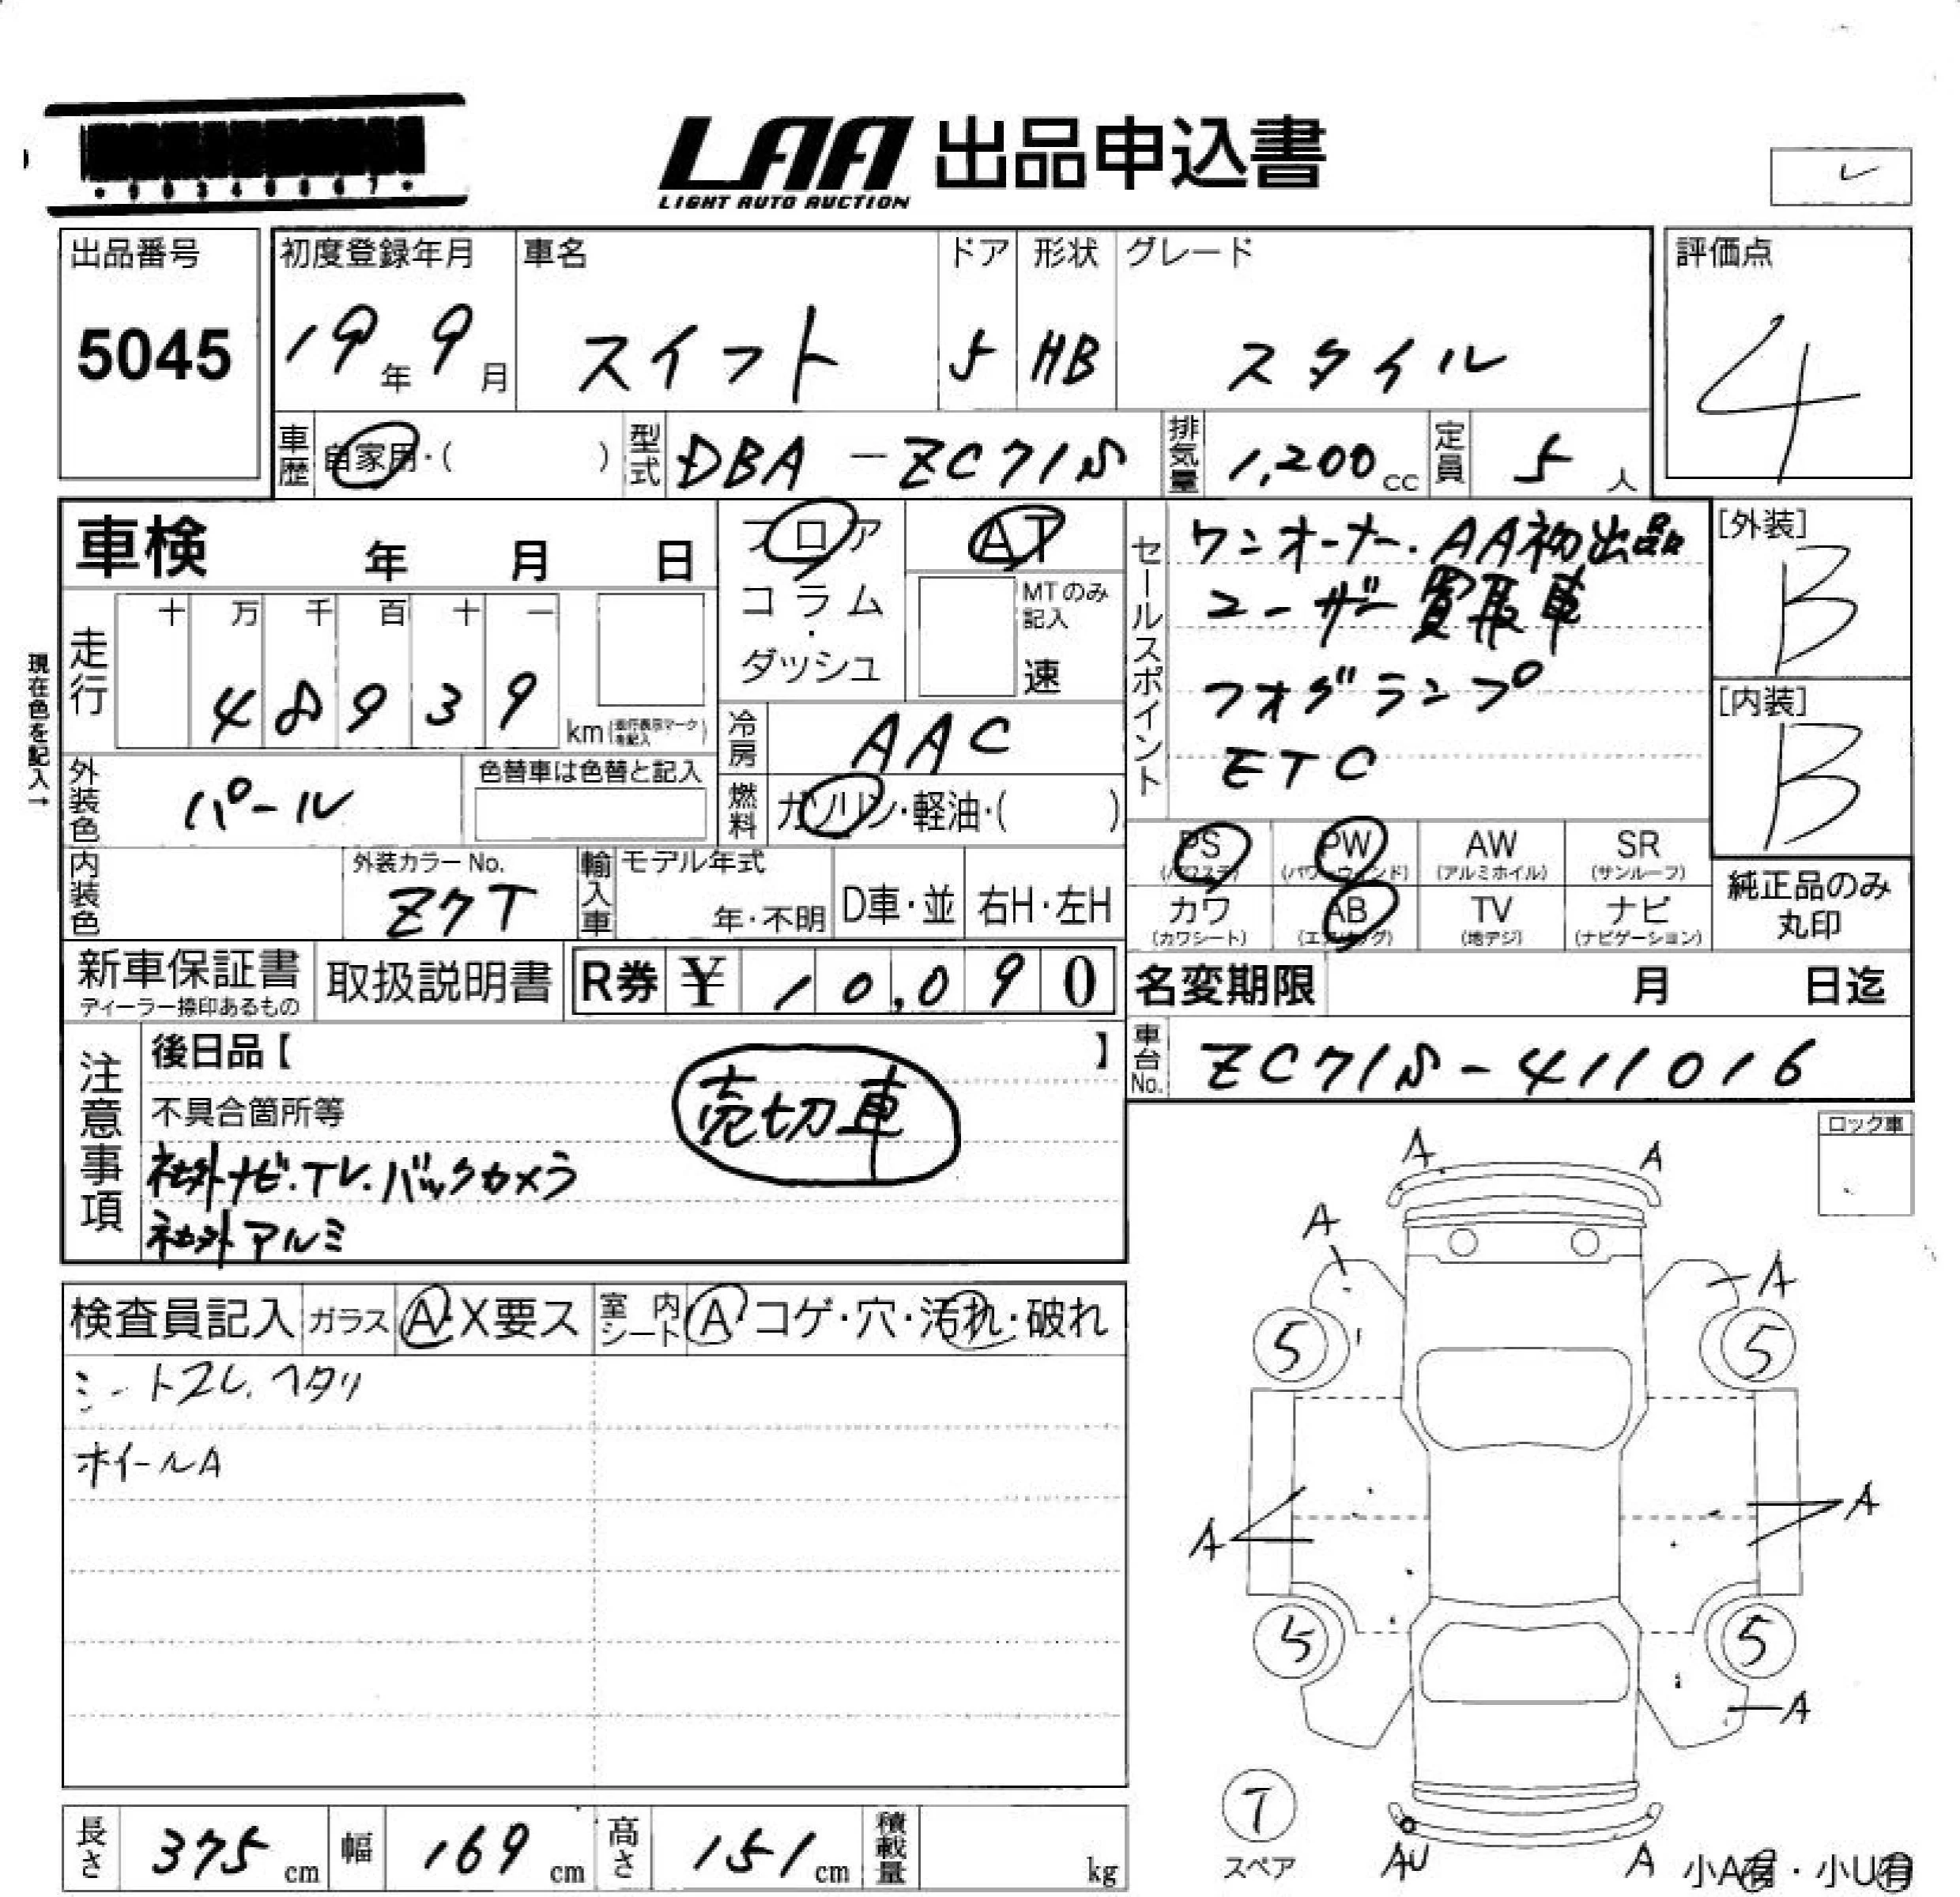 LAA 出品申込書
LIGHT AUTO AUCTION
出品番号
5045
初度登録年月
19年 9月
車名
スイフト
ドア
5
形状
HB
グレード
スタイル
評価点
4
車歴
自家用・( )
型式
DBA-ZC71S
排気量
1,200cc
定員
5人
車検 年 月 日
フロア
コラム・ダッシュ
AT
MTのみ記入
速
セールスポイント
ワンオーナー.AA初出品
ユーザー買取車
フォグランプ
ETC
[外装]
B
[内装]
B
現在色を記入→
走行
十 万 千 百 十 一
4 8 9 3 9
km(走行表示マークを記入)
冷房
AAC
外装色
パール
色替車は色替と記入
燃料
ガソリン・軽油・( )
内装色
外装カラーNo.
Z7T
輸入車
モデル年式
年・不明
D車・並
右H・左H
PS (パワステ)
PW (パワーウィンド)
AW (アルミホイル)
SR (サンルーフ)
カワ (カワシート)
AB (エアバッグ)
TV (地デジ)
ナビ (ナビゲーション)
純正品のみ
丸印
新車保証書
ディーラー捺印あるもの
取扱説明書
R券 ¥ 10,090
名変期限 月 日迄
車台No.
ZC71S-411016
注意事項
後日品【 】
売切車
不具合箇所等
社外ナビ.TV.バックカメラ
社外アルミ
ロック車
検査員記入
ガラス
A・X要ス
室内シート
A・コゲ・穴・汚れ・破れ
シートスレ.ヘタリ
ホイールA
A A
A A
5 5
A A
5 5
A
T
スペア
AU A
小A有・小U有
長さ 375cm
幅 169cm
高さ 151cm
積載量 kg